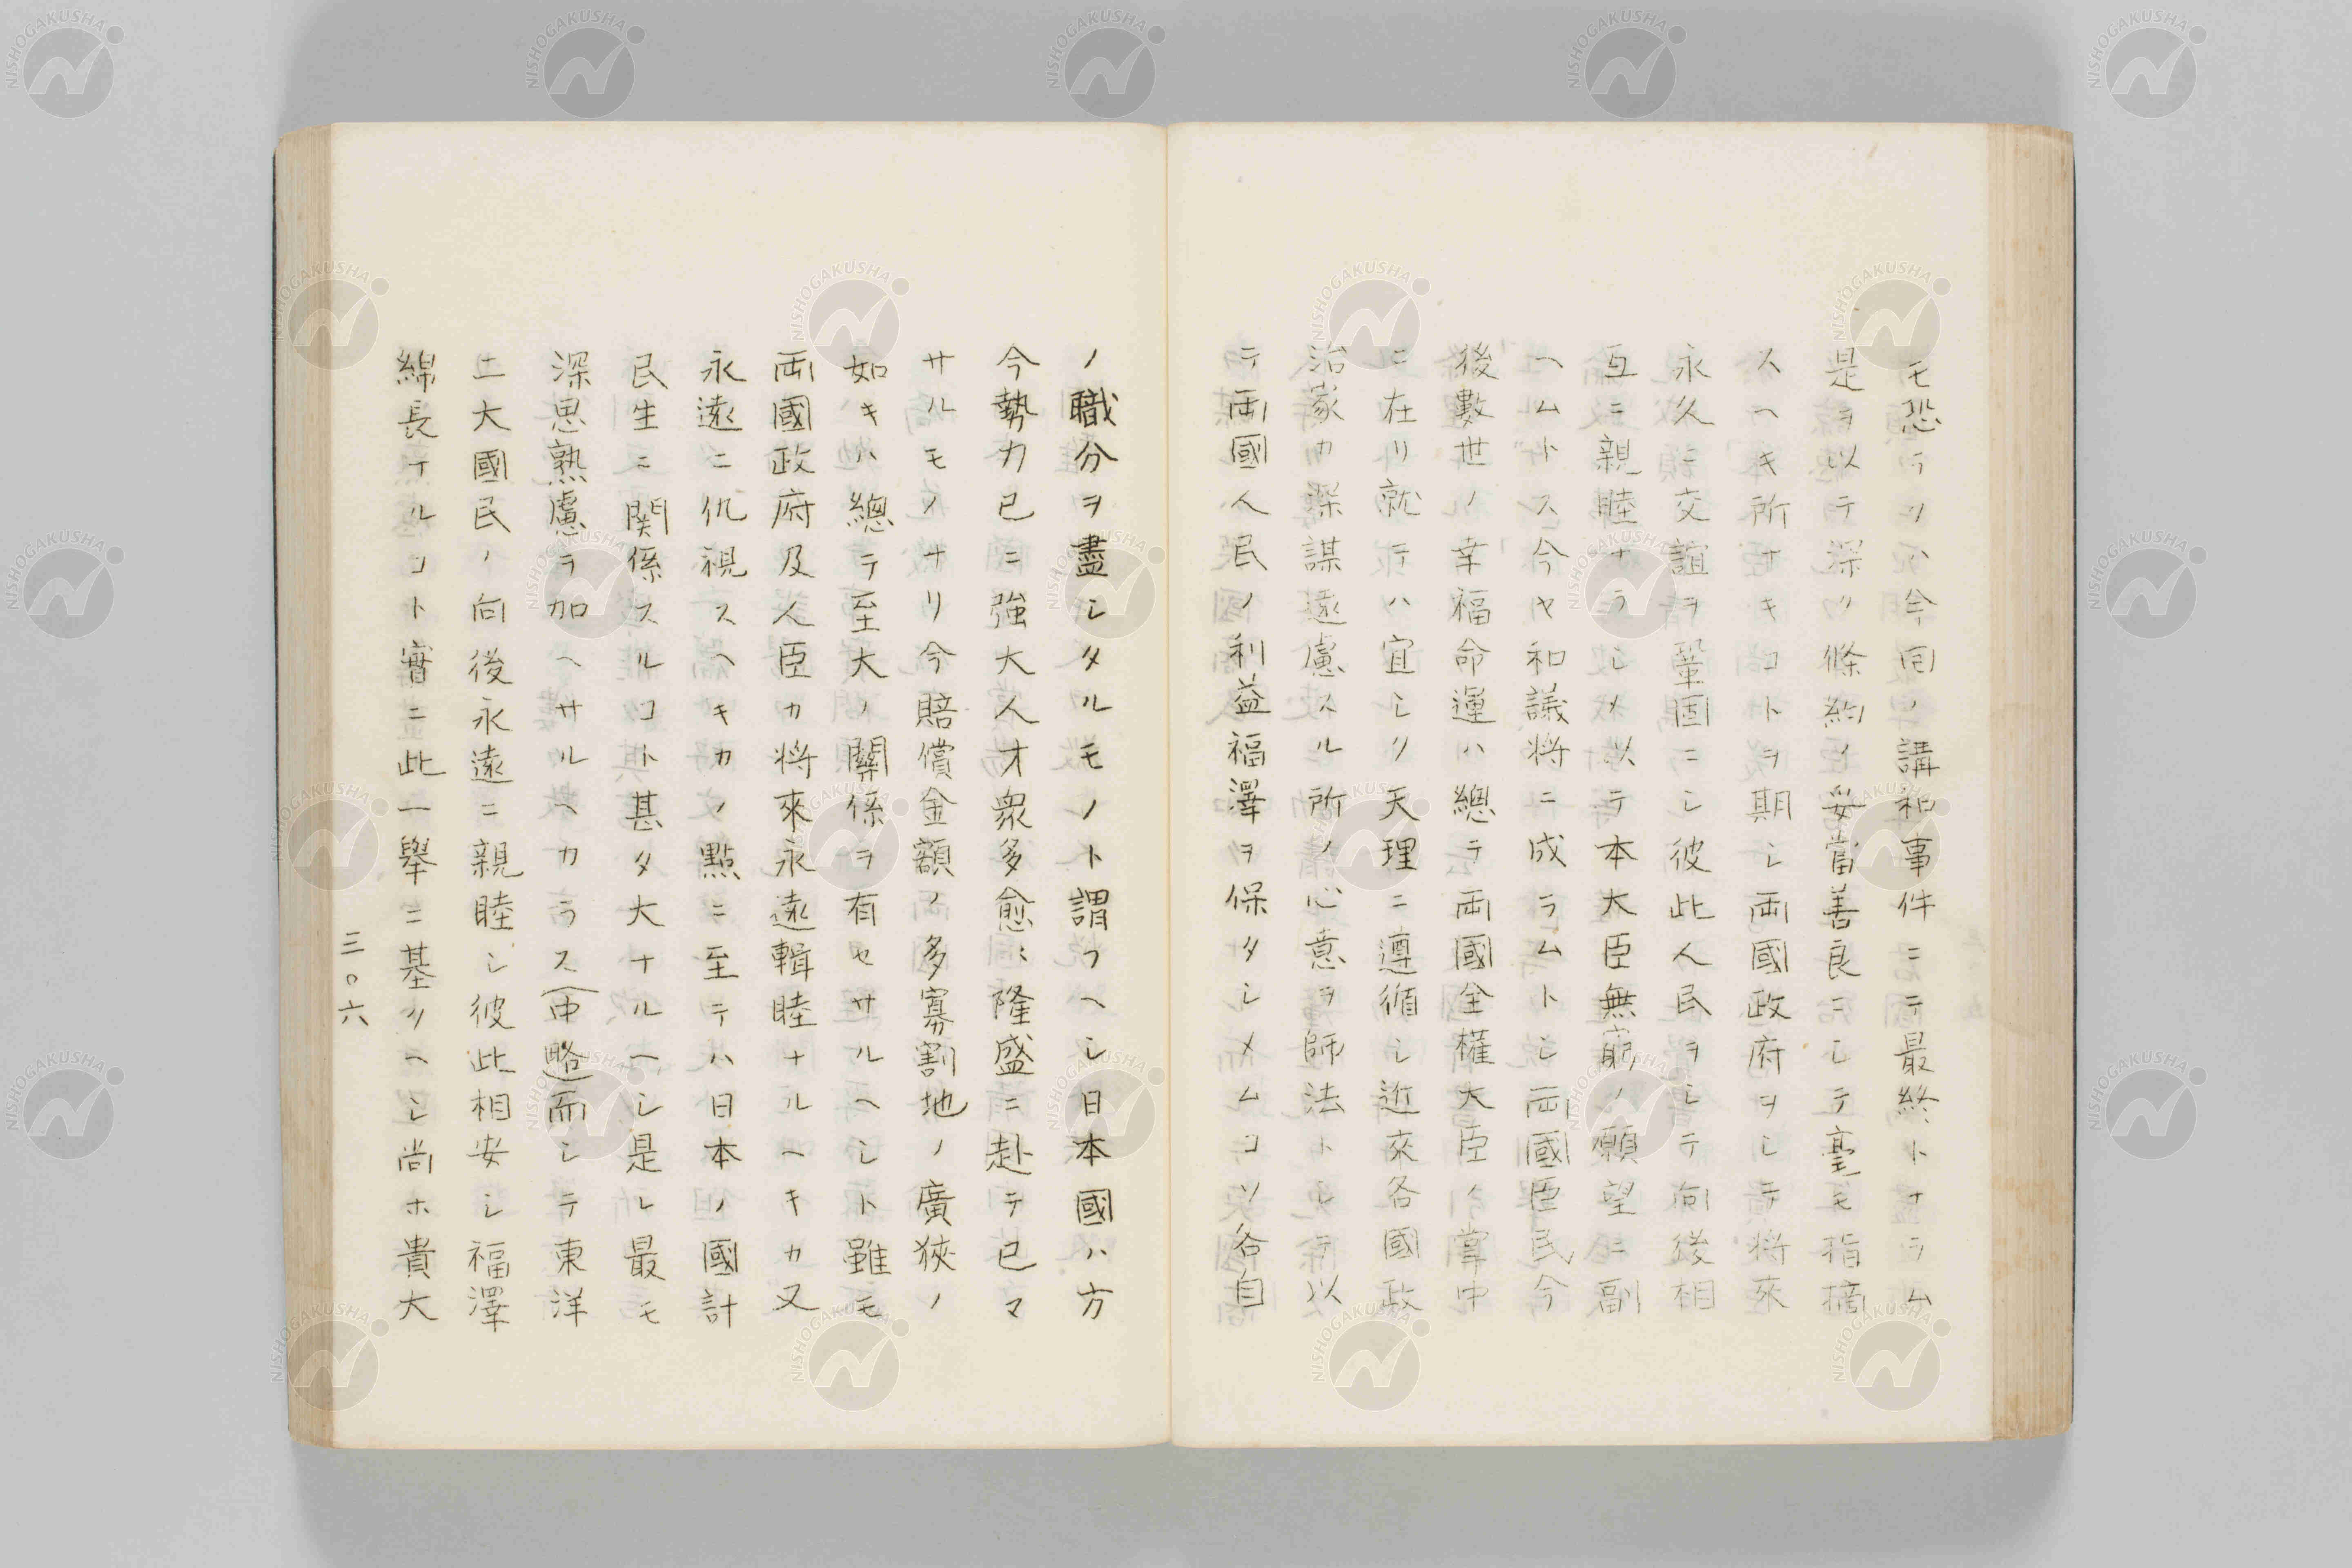 モ恐ラクハ今回ノ講和事件ニテ最終トナラム
是ヲ以テ深ク條約ノ妥當善良ニシテ毫モ指摘
スヘキ所ナキコトヲ期シ両國政府ヲシテ将來
永久ニ交誼ヲ鞏固ニシ彼此人民ヲシテ向後相
互ニ親睦ナラシメ以テ本大臣無窮ノ願望ニ副
ヘムトス今ヤ和議将ニ成ラムトシ両國臣民今
後數世ノ幸福命運ハ總テ両國全權大臣ノ掌中
ニ在リ就テハ宜シク天理ニ遵循シ近來各國政
治家カ深謀遠慮スル所ノ心意ヲ師法トシテ以
テ両國人民ノ利益福澤ヲ保タシメムコソ各自
ノ職分ヲ盡シタルモノト謂フヘシ日本國ハ方
今勢力已ニ強大人才衆多愈〻隆盛ニ赴テ已マ
サルモノナリ今賠償金額ノ多寡割地ノ廣狹ノ
如キハ總テ至大ノ關係ヲ有セサルヘシト雖モ
両國政府及人臣カ将來永遠輯睦ナルヘキカ又
永遠ニ仇視スヘキカノ點ニ至テハ日本ノ國計
民生ニ関係スルコト甚タ大ナルヘシ是レ最モ
深思熟慮ヲ加ヘサルヘカラス(中略)而シテ東洋
二大國民ノ向後永遠ニ親睦シ彼此相安シ福澤
綿長ナルコト實ニ此一舉ニ基クヘシ尚ホ貴大
三〇六
NISHOGAKUSHA